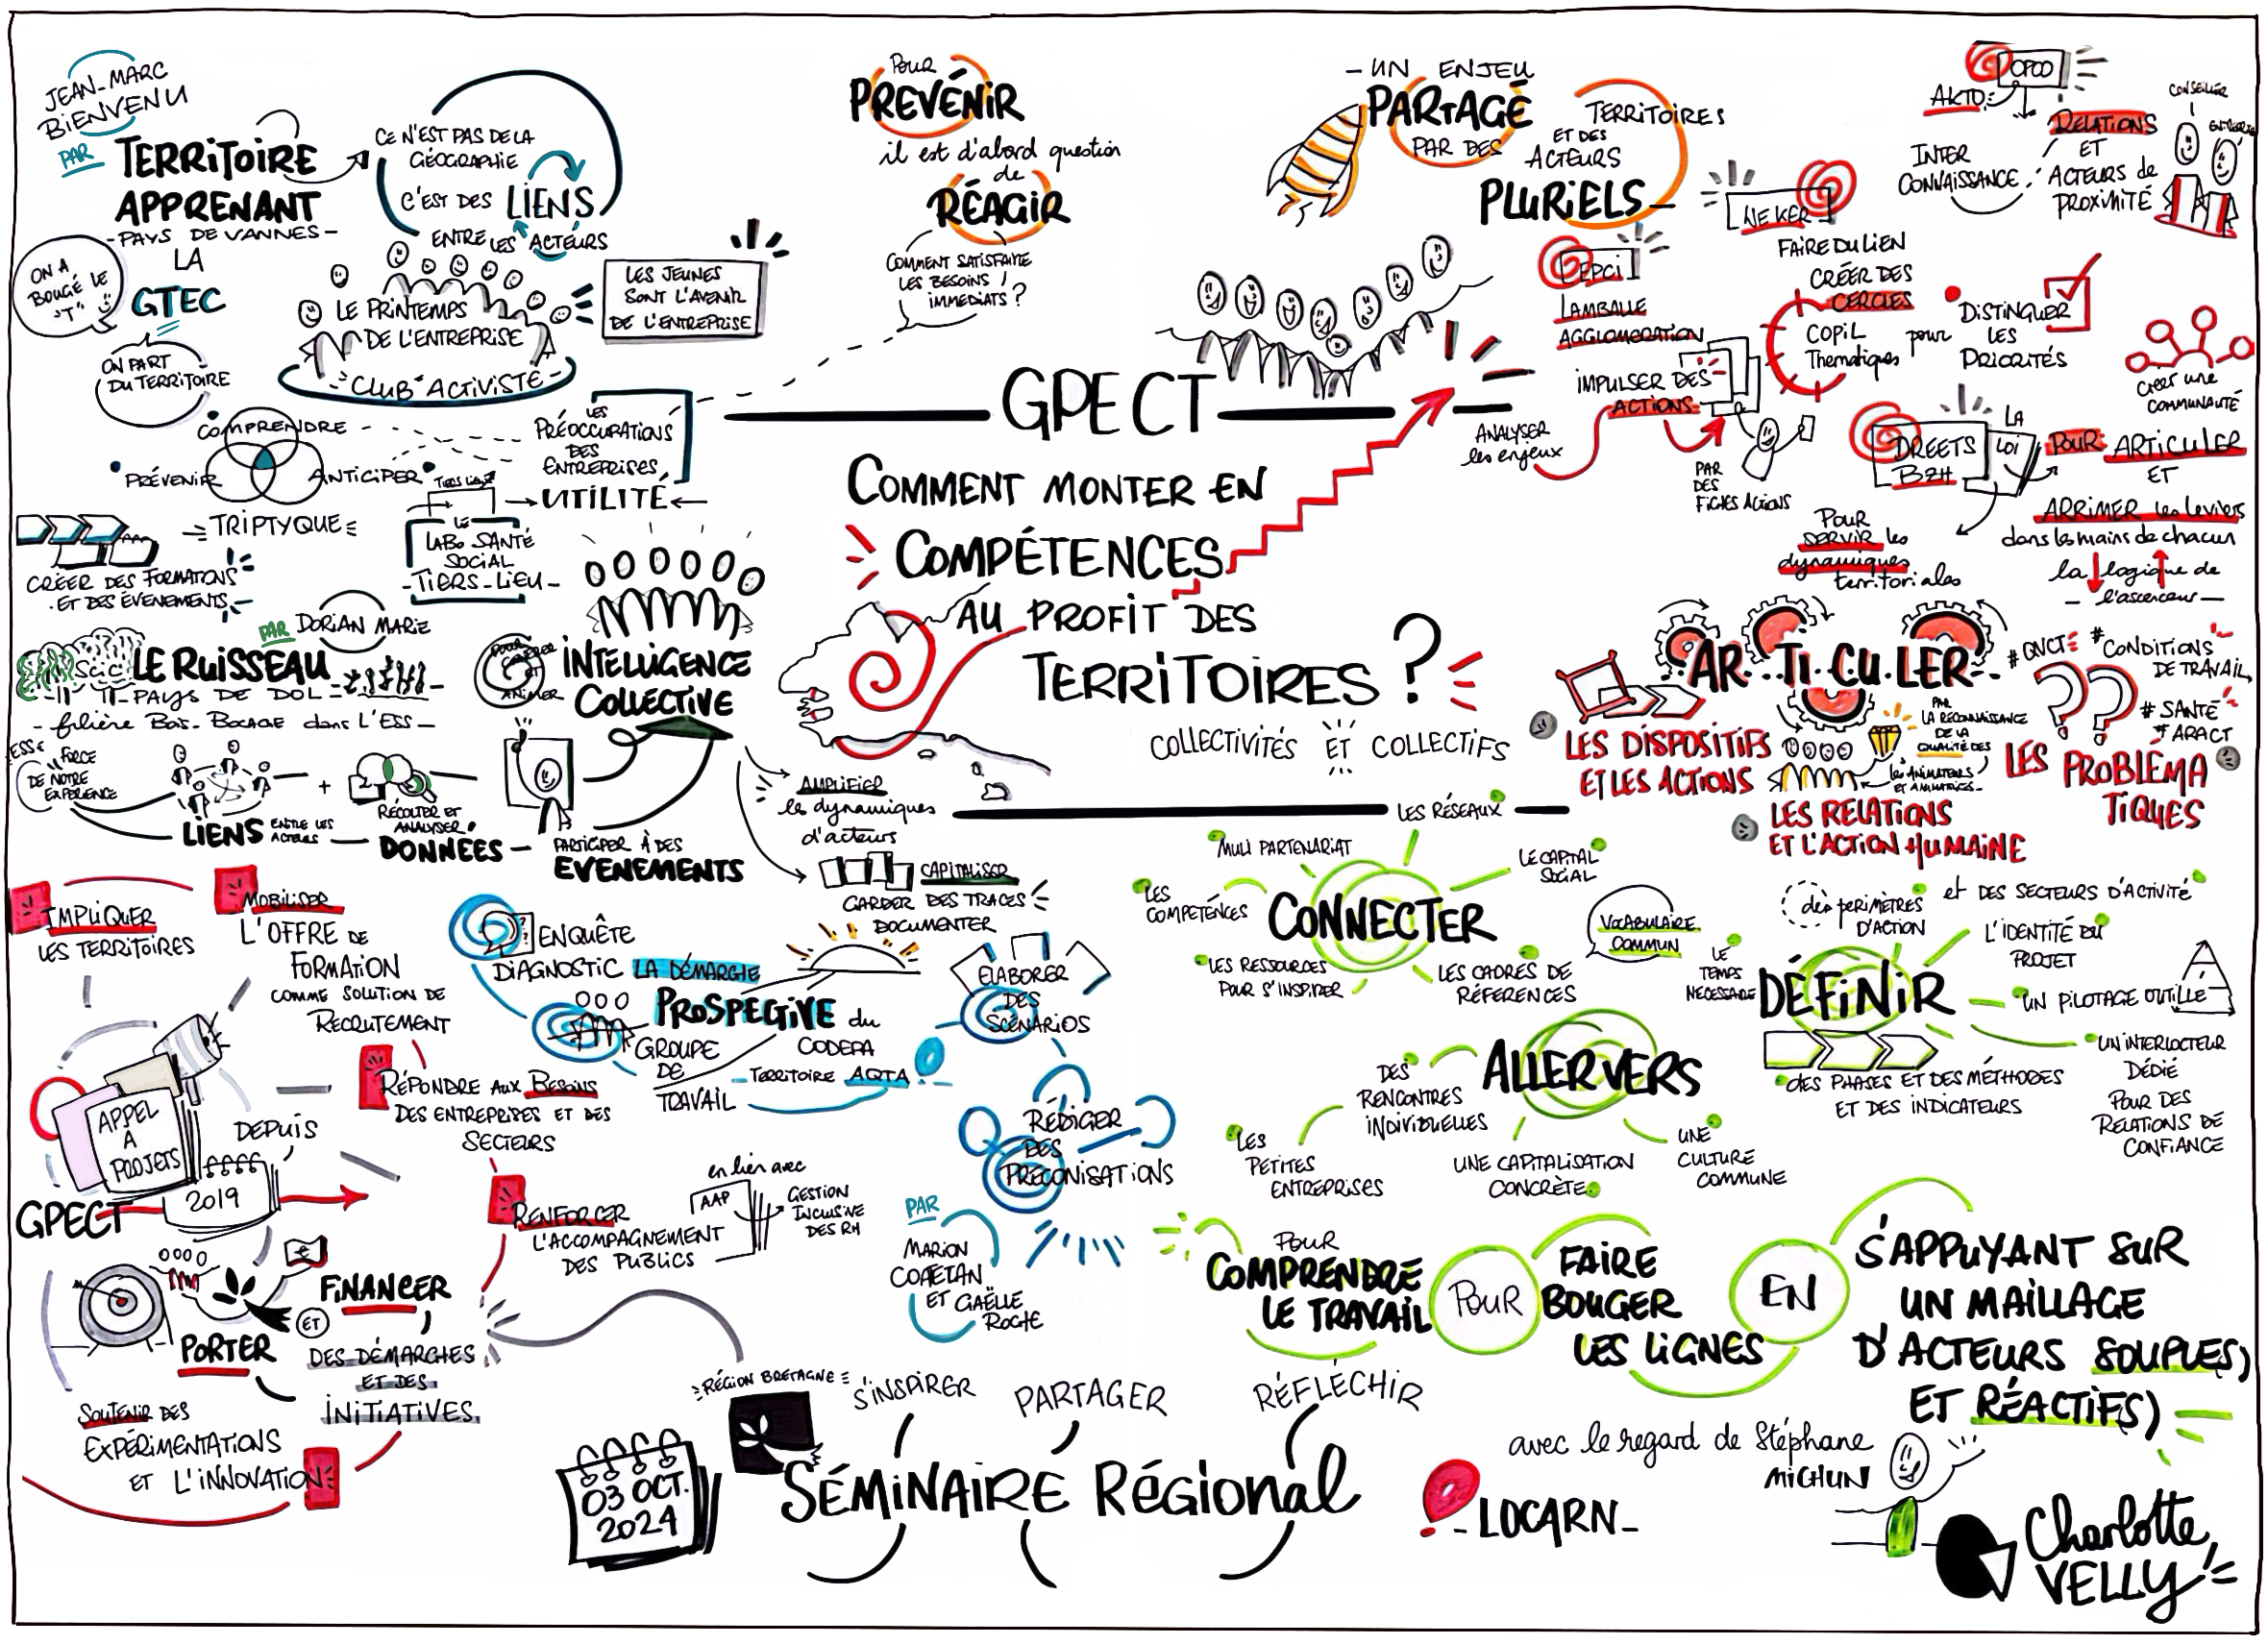 JEAN-MARC
BIENVENU
PAR
TERRITOIRE
APPRENANT
- PAYS DE VANNES -
LA
GTEC
ON A
BOUGÉ LE
"T"
ON PART
DU TERRITOIRE
CE N'EST PAS DE LA
GÉOGRAPHIE
C'EST DES LIENS
ENTRE LES ACTEURS
LE PRINTEMPS
DE L'ENTREPRISE
- CLUB ACTIVISTE -
LES JEUNES
SONT L'AVENIR
DE L'ENTREPRISE
COMPRENDRE
PRÉVENIR
ANTICIPER
TRIPTYQUE
LES
PRÉOCCUPATIONS
DES
ENTREPRISES
UTILITÉ
TIERS LIEUX
LE
LABO SANTÉ
SOCIAL
- TIERS-LIEU -
CRÉER DES FORMATIONS
ET DES ÉVENEMENTS
POUR
PREVÉNIR
il est d'abord question
de
RÉAGIR
COMMENT SATISFAIRE
LES BESOINS
IMMEDIATS ?
- UN ENJEU
PARTAGÉ
PAR DES
TERRITOIRES
ET DES
ACTEURS
PLURIELS -
OPCO
AKTO
INTER
CONNAISSANCE
RELATIONS
ET
ACTEURS de
PROXIMITÉ
CONSEILLER
WE KER
FAIRE DU LIEN
CRÉER DES
CERCLES
COPIL
Thematiques
pour
DISTINGUER
LES
PRIORITÉS
Creer une
COMMUNAUTÉ
EPCI
LAMBALLE
AGGLOMERATION
IMPULSER DES
ACTIONS
ANALYSER
les enjeux
PAR
DES
FICHES ACTIONS
DREETS
BZH
LA
LOI
POUR ARTICULER
ET
ARRIMER les leviers
dans les mains de chacun
la logique de
- l'ascenseur -
POUR
SERVIR les
dynamiques
territoriales
GPECT
COMMENT MONTER EN
COMPÉTENCES
AU PROFIT DES
TERRITOIRES ?
COLLECTIVITÉS ET COLLECTIFS
PAR DORIAN MARIE
LE RUISSEAU
- PAYS DE DOL -
- filière Bois-Bocage dans L'ESS -
ESS
FORCE
DE NOTRE
EXPERIENCE
LIENS ENTRE LES
ACTEURS
+
RÉCOLTER ET
ANALYSER
DONNÉES -
PARTICIPER À DES
EVENEMENTS
POUR
CRÉER
ET
ANIMER
INTELLIGENCE
COLLECTIVE
AMPLIFIER
les dynamiques
d'acteurs
CAPITALISER
GARDER DES TRACES
DOCUMENTER
AR..TI.CU.LER..
LES DISPOSITIFS
ET LES ACTIONS
PAR
LA RECONNAISSANCE
DE LA
QUALITÉ DES
les ANIMATEURS
ET ANIMATRICES
LES RELATIONS
ET L'ACTION HUMAINE
#QVCT
#CONDITIONS
DE TRAVAIL
#SANTÉ
#ARACT
??
LES PROBLÉMA
TIQUES
IMPLIQUER
LES TERRITOIRES
MOBILISER
L'OFFRE DE
FORMATION
COMME SOLUTION DE
RECRUTEMENT
RÉPONDRE AUX BESOINS
DES ENTREPRISES ET DES
SECTEURS
APPEL
A
PROJETS
DEPUIS
2019
GPECT
RENFORCER
L'ACCOMPAGNEMENT
DES PUBLICS
en lien avec
AAP
GESTION
INCLUSIVE
DES RH
€
FINANCER
ET
PORTER
DES DÉMARCHES
ET DES
INITIATIVES
SOUTENIR DES
EXPÉRIMENTATIONS
ET L'INNOVATION
?
ENQUÊTE
DIAGNOSTIC LA DÉMARCHE
PROSPECTIVE du
CODEFA
GROUPE
DE
TRAVAIL
- TERRITOIRE AQTA
ELABORER
DES
SCÉNARIOS
RÉDIGER
DES
PRÉCONISATIONS
PAR
MARION
COAETAN
ET GAËLLE
ROCHE
LES RÉSEAUX
MULI PARTENARIAT
LE CAPITAL
SOCIAL
LES
COMPETENCES
CONNECTER
LES RESSOURCES
POUR S'INSPIRER
LES CADRES DE
RÉFERENCES
VOCABULAIRE
COMMUN
des perimètres
D'ACTION
et DES SECTEURS D'ACTIVITÉ
L'IDENTITÉ DU
PROJET
LE
TEMPS
NÉCESSAIRE
DÉFINIR
UN PILOTAGE OUTILLÉ
UN INTERLOCTEUR
DÉDIÉ
POUR DES
RELATIONS DE
CONFIANCE
DES PHASES ET DES MÉTHODES
ET DES INDICATEURS
ALLER VERS
DES
RENCONTRES
INDIVIDUELLES
LES
PETITES
ENTREPRISES
UNE CAPITALISATION
CONCRÈTE
UNE
CULTURE
COMMUNE
POUR
COMPRENDRE
LE TRAVAIL
POUR
FAIRE
BOUGER
LES LIGNES
EN
S'APPUYANT SUR
UN MAILLAGE
D'ACTEURS SOUPLES,
ET RÉACTIFS)
avec le regard de Stéphane
MICHUN
RÉGION BRETAGNE
S'INSPIRER
PARTAGER
RÉFLÉCHIR
03 OCT.
2024
SÉMINAIRE RÉGIONAL
- LOCARN -
Charlotte
VELLY